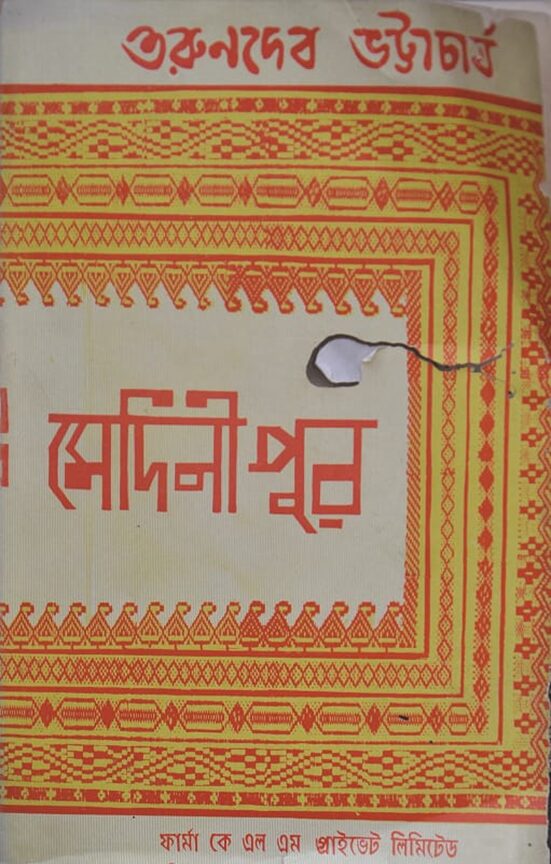 তরুনদেব ভট্টাচার্য
মেদিনীপুর
ফার্মা কে এল এম প্রাইভেট লিমিটেড